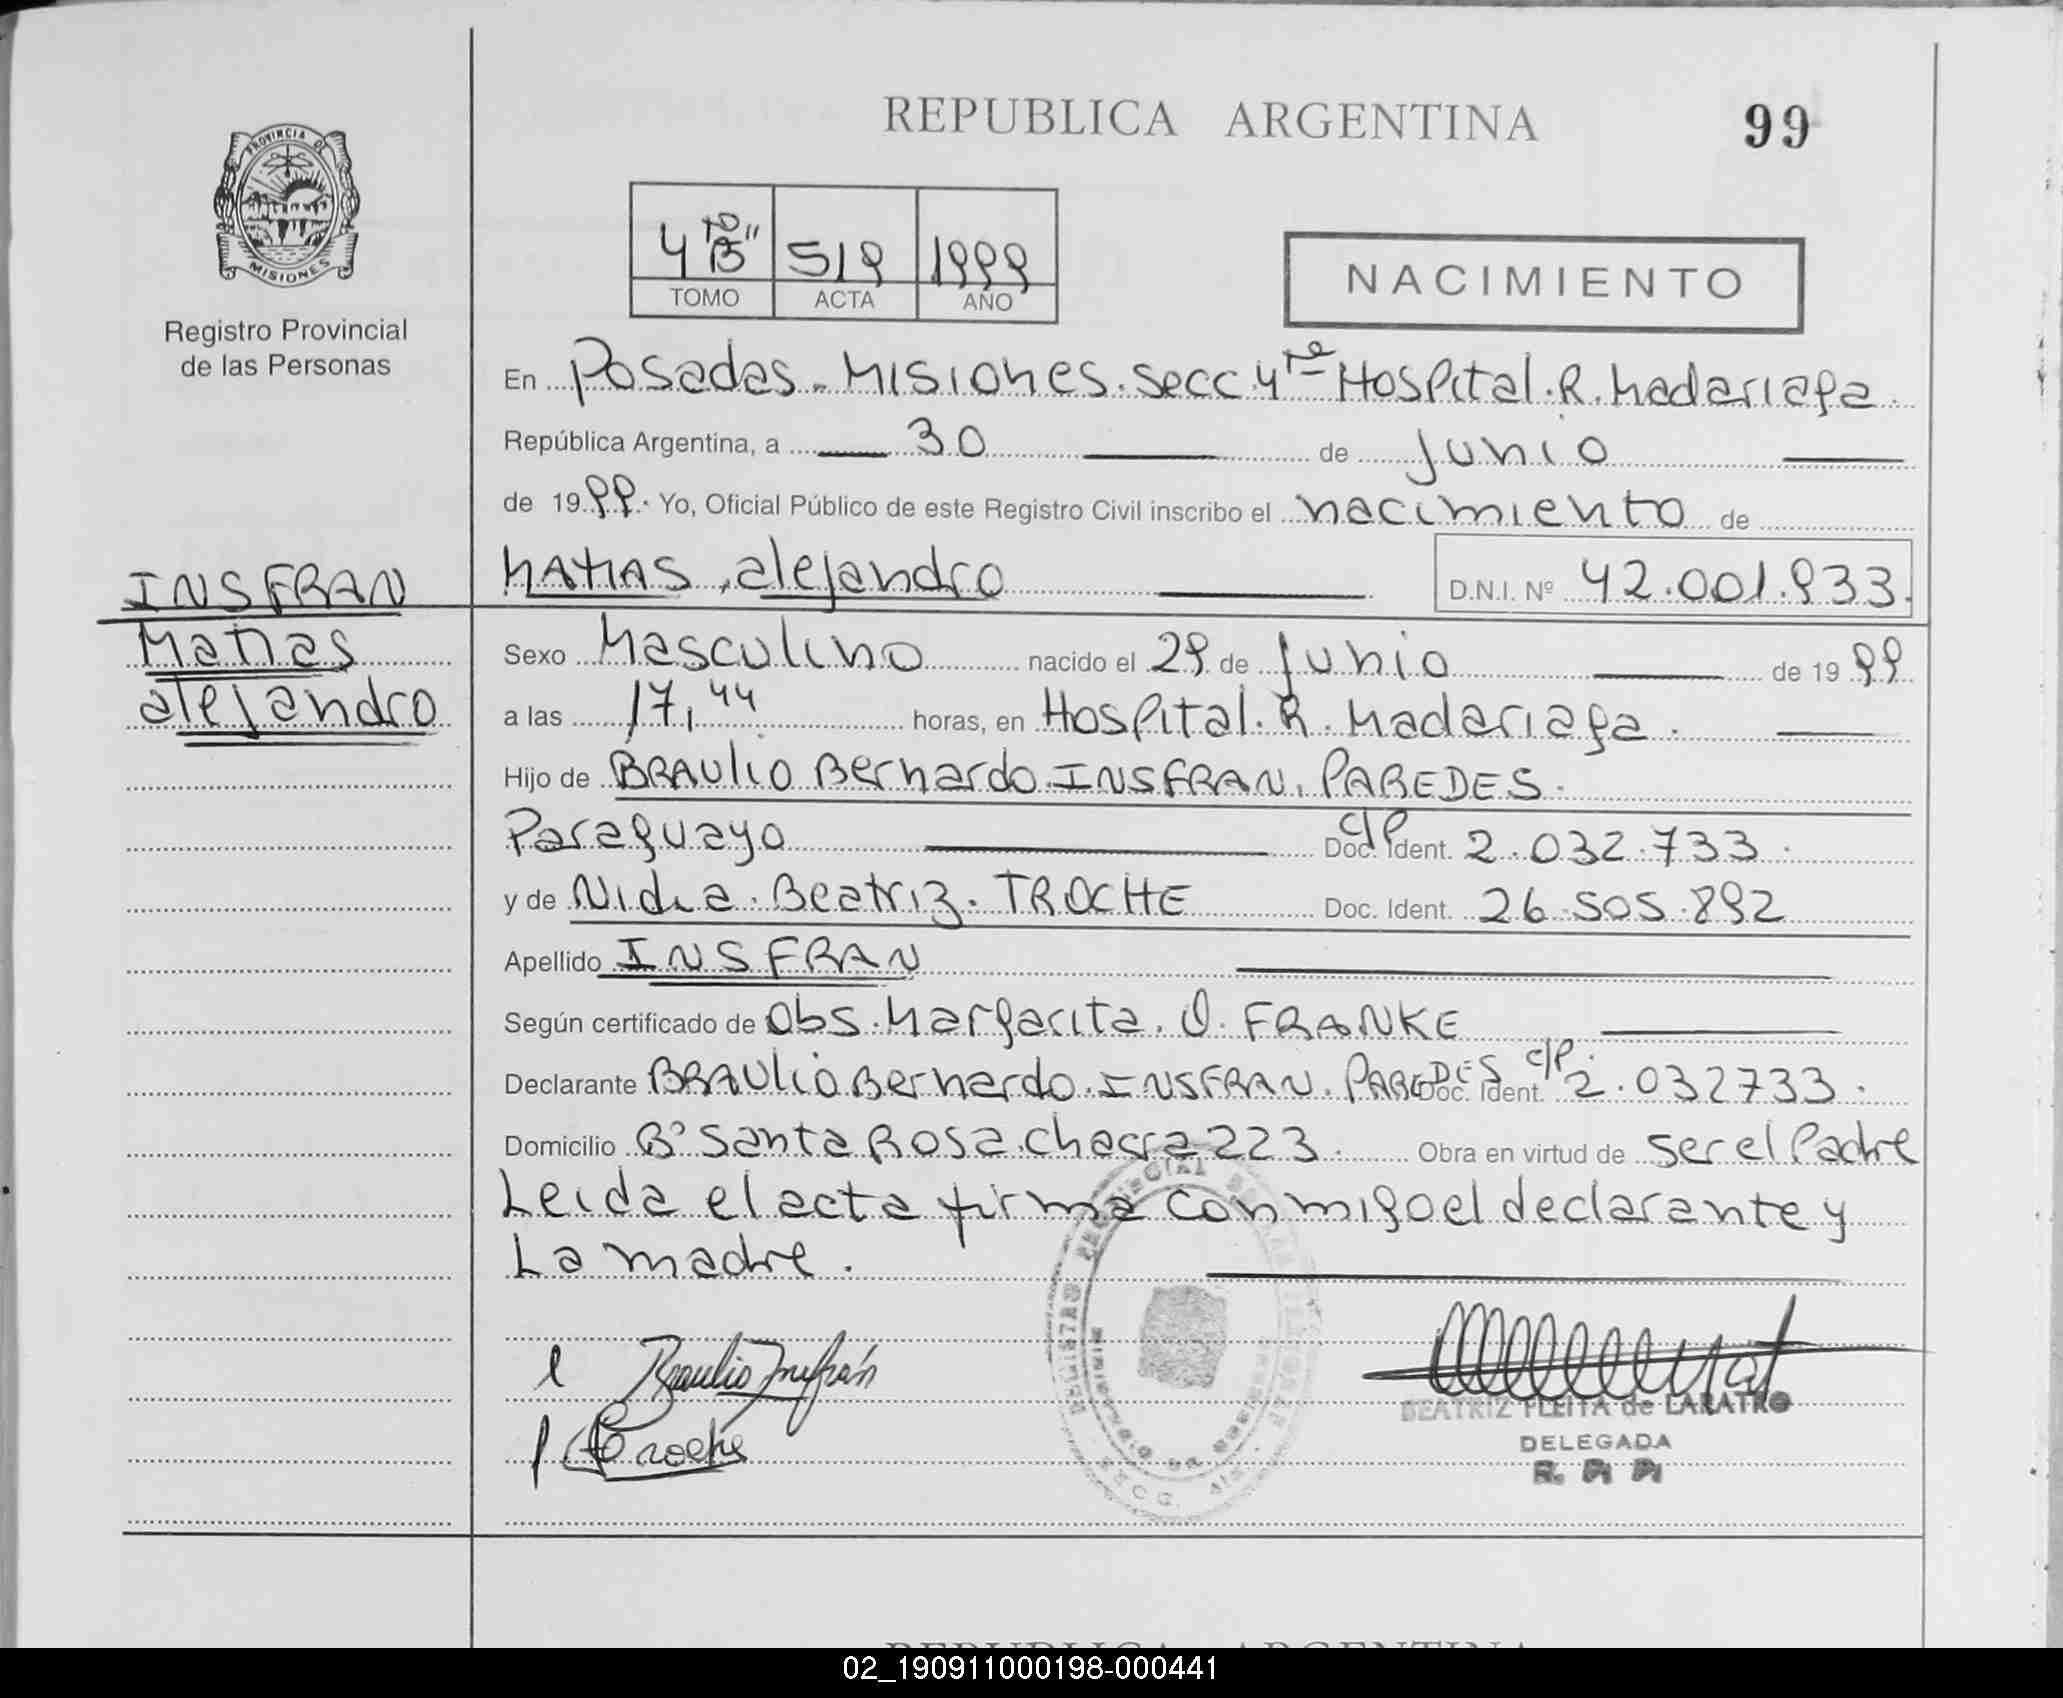 REPUBLICA ARGENTINA
99
PROVINCIA DE
MISIONES
Registro Provincial
de las Personas
4to "B" 519 1999
TOMO ACTA AÑO
NACIMIENTO
En Posadas - Misiones. Secc. 4ta Hospital. R. Madariaga.
República Argentina, a 30 de Junio
de 1999. Yo, Oficial Público de este Registro Civil inscribo el nacimiento de
MATIAS, alejandro D.N.I. Nº 42.001.933.
INSFRAN
Matias
alejandro
Sexo Masculino nacido el 29 de Junio de 1999
a las 17,44 horas, en Hospital. R. Madariaga.
Hijo de BRAULIO Bernardo INSFRAN, PAREDES.
Paraguayo Doc. Ident. C/P 2.032.733.
y de Nidia. Beatriz. TROCHE Doc. Ident. 26.505.892
Apellido INSFRAN
Según certificado de Obs. Margarita. O. FRANKE
Declarante BRAULIO Bernardo. INSFRAN. PAREDES Doc. Ident. C/P. 2.032733.
Domicilio Bº Santa Rosa. Chacra 223. Obra en virtud de ser el Padre
Leida el acta firma conmigo el declarante y
La madre.
Braulio Insfrán
Troche
BEATRIZ FLEITA de LABATRO
DELEGADA
R. P. P.
REPUBLICA ARGENTINA
02_190911000198-000441